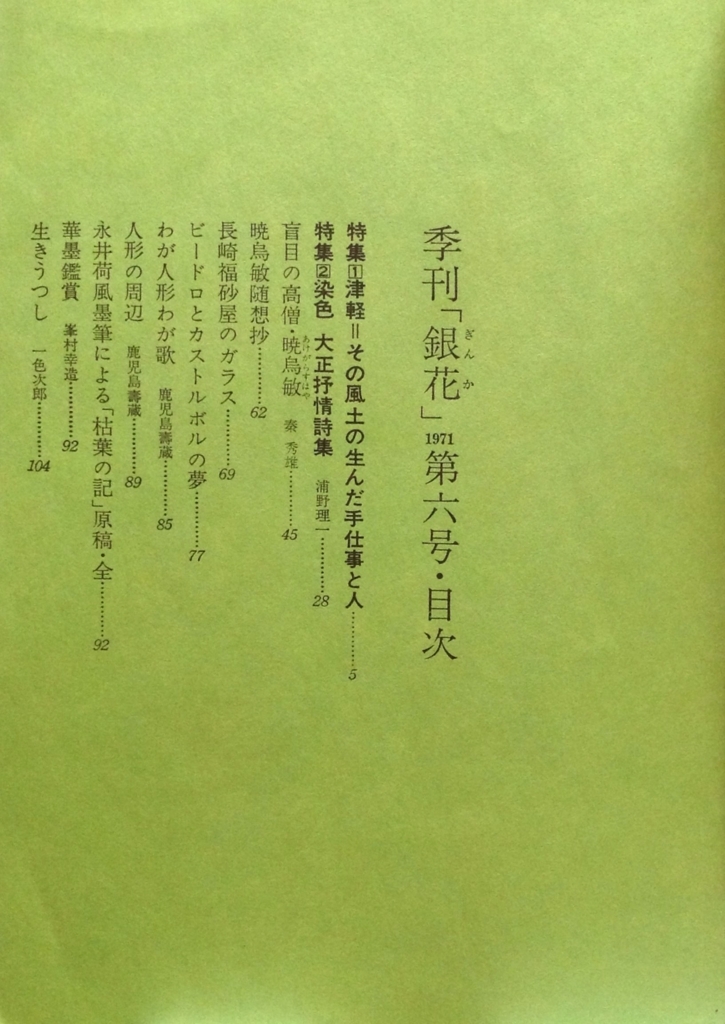 季刊「銀花」1971第六号・目次
ぎんか
特集①津軽=その風土の生んだ手仕事と人…………5
特集②染色 大正抒情詩集 浦野理一…………28
盲目の高僧・暁烏敏 秦秀雄…………45
あけがらすはや
暁烏敏随想抄…………62
長崎福砂屋のガラス…………69
ビードロとカストルボルの夢…………77
わが人形わが歌 鹿児島壽蔵…………85
人形の周辺 鹿児島壽蔵…………89
永井荷風墨筆による「枯葉の記」原稿・全…………92
華墨鑑賞 峯村幸造…………92
生きうつし 一色次郎…………104